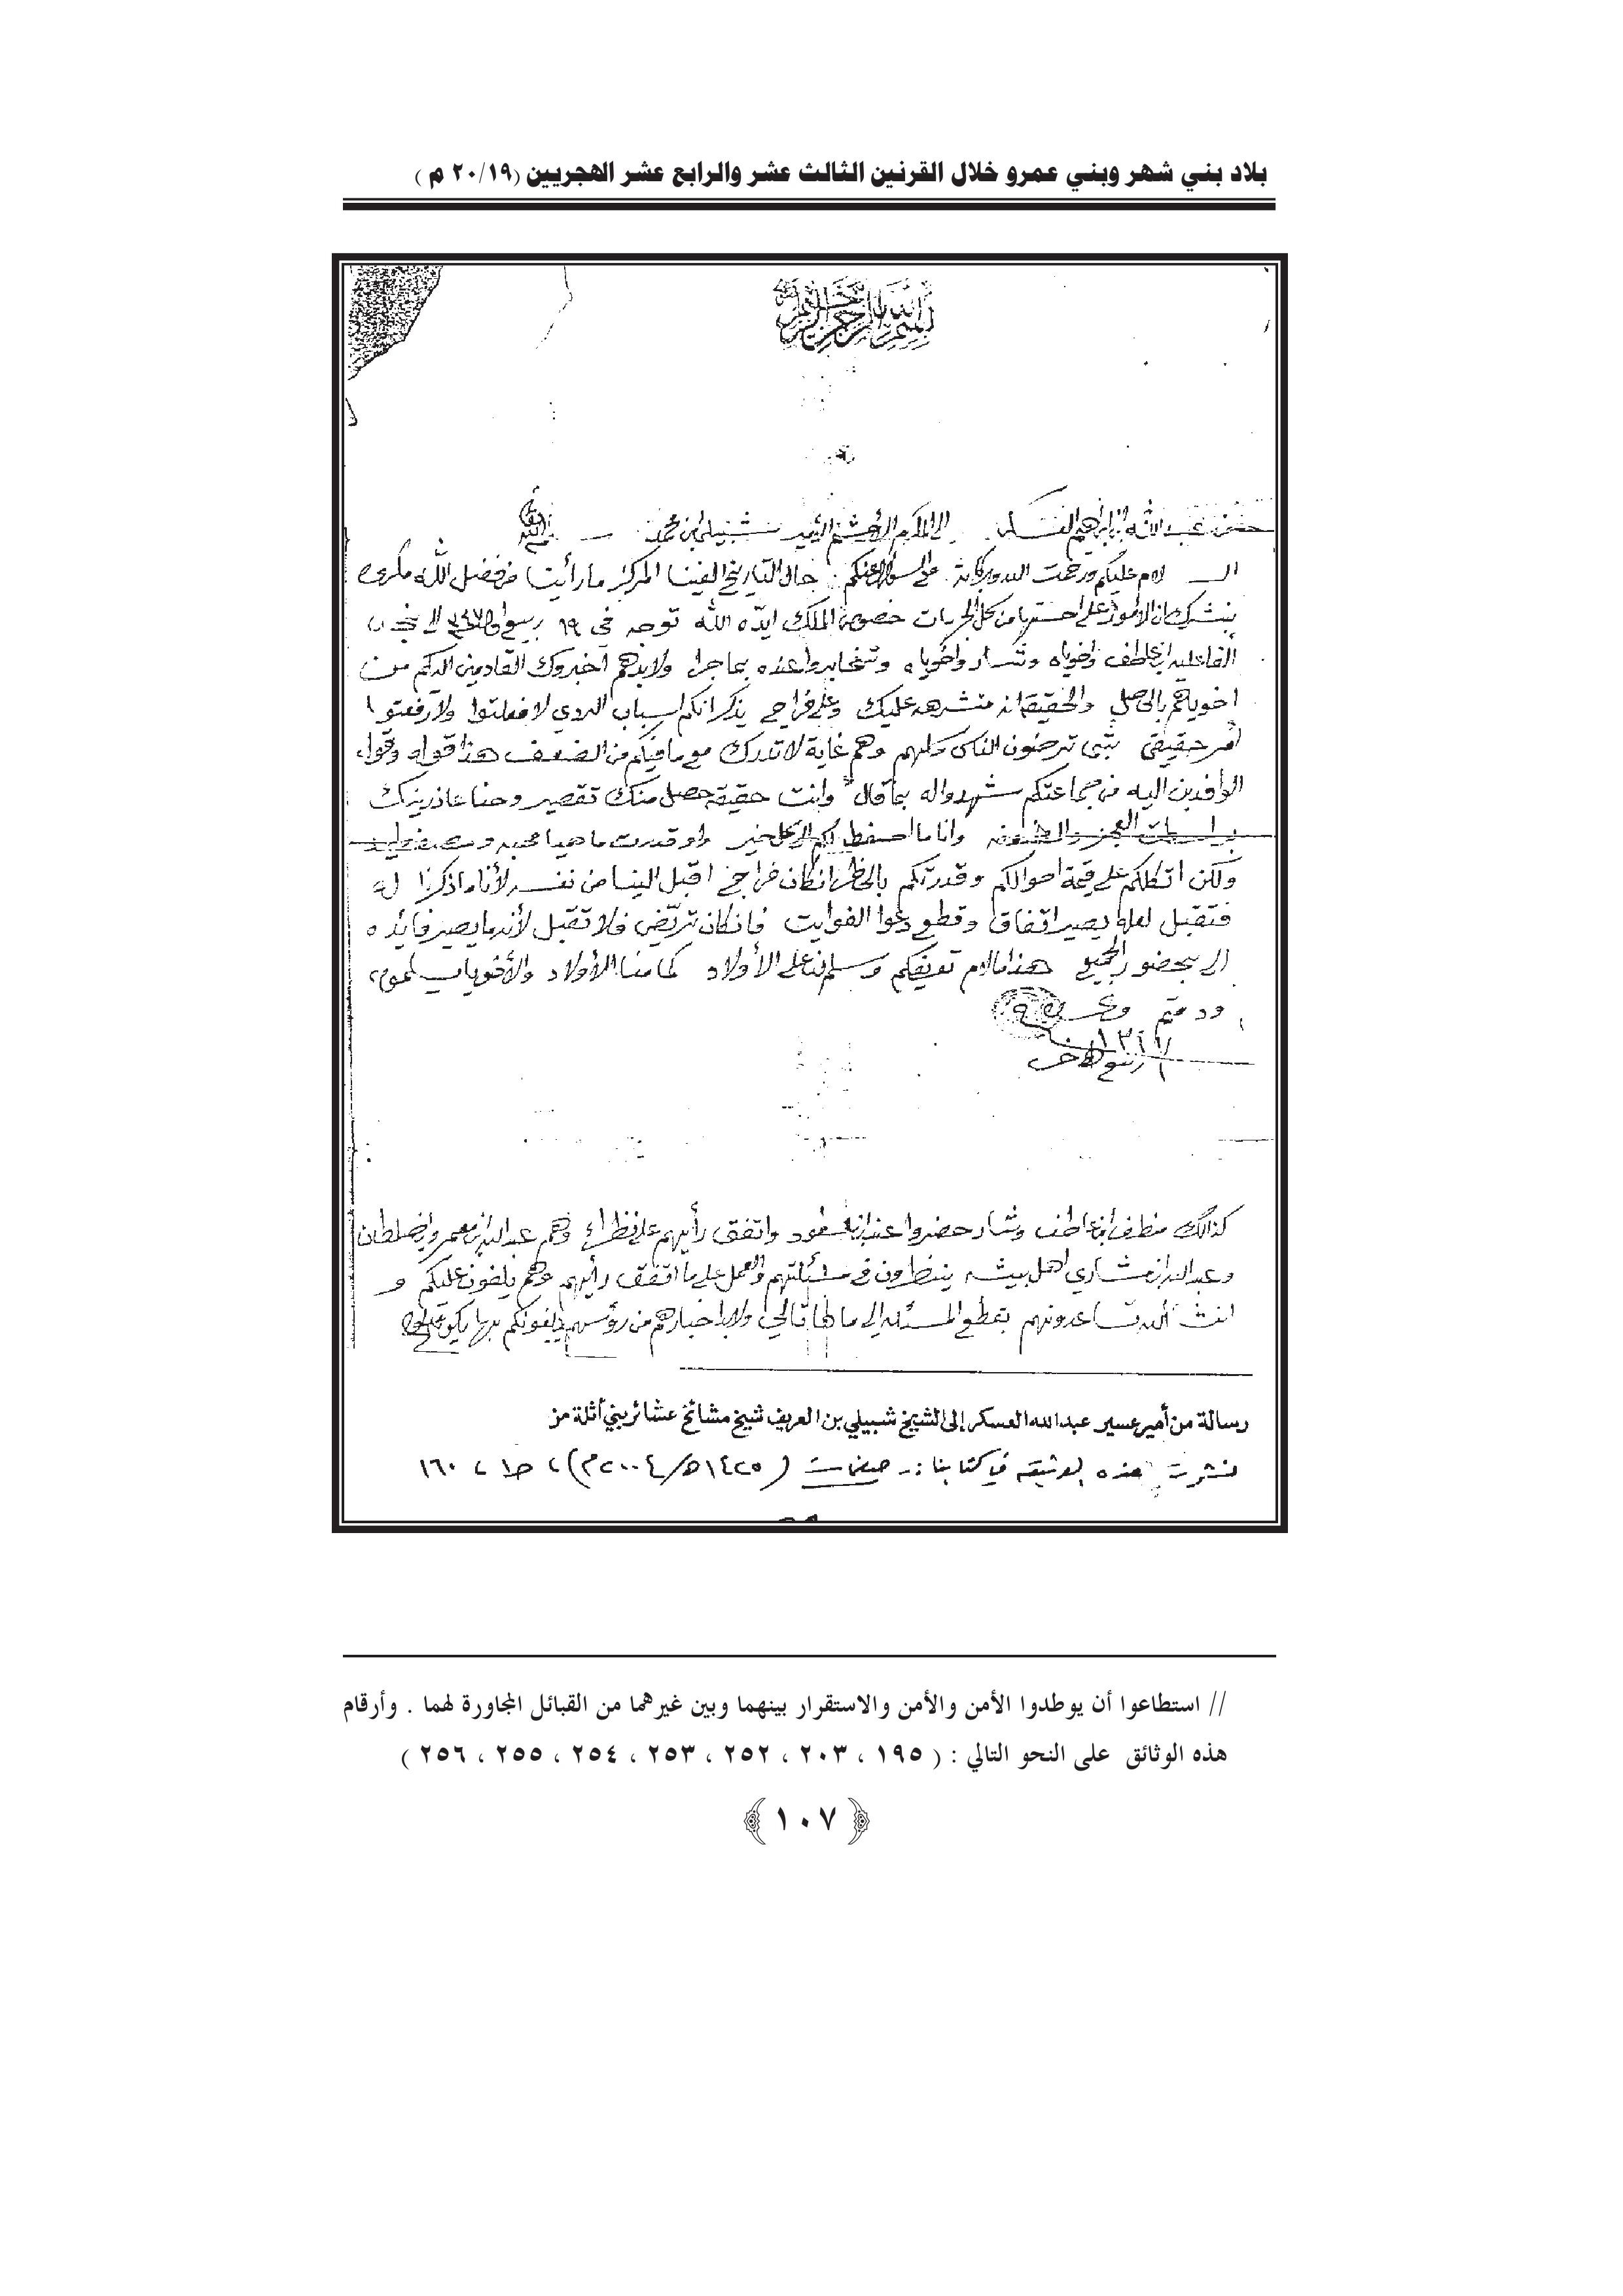 بلاد بني شهر وبني عمرو خلال القرنين الثالث عشر والرابع عشر الهجريين (٢٠/١٩ م )
بسم الله الرحمن الرحيم
من عبد الله بن ابراهيم العسكر الى المكرم الأحشم الأمير شبيلي ابن محمد
السلام عليكم ورحمت الله وبركاته على السؤال عنكم حال التاريخ الفينا المركز ما رأينا من فضل الله مكروه
نبشرك ان الأمور على احسنها من كل الجهات خصوصا الملك ايده الله توجه في ١٩ ربيع الى نجد
ابن عاطف واخوياه واخوياه وتخابروا عنده بما جرا ولابدهم أخبروك القادمين اليكم من
اخوياهم بالحاصل والحقيقة انه منشره عليك وعلى فراج يذكر انكم اسباب الردي لا فعلتوا ولا رفعتوا
أمر حقيقي تبى ترضون الناس كلهم وهم غاية لا تدرك مع ما فيكم من الضعف هذا قوله وقول
الوافدين اليه من جماعتكم شهدوا له بما قال وانت حقيقة حصل منك تقصير وحنا عاذرينك
العجز وانا ما احفظ لكم الا كل خير
ولكن اتكلكم على قيمة احوالكم وقدرتكم بالحظر انكان فراج اقبل الينا من نفسه لأنا ما ذكرنا له
فتقبل لعله يصير اتفاق وقطع دعوا الفوايت فانكان تريض فلا تقبل لأنه ما يصير فايده
الى بحضور الجميع هذا ما لزم تعريفكم وسلم لنا على الأولاد كما منا الأولاد والأخويا يسلمون
ودمتم
ربيع الاخر
كذالك مطلق ابن عاطف وشار حضروا عند ابن سعود واتفق رأيهم على نظراء وهم عبد الله ابن معمر
وعبد الله ابن مشاري اهل بيشه ينظرون في مسئلتهم والعمل على ما اتفق رأيهم وهم يلفون عليكم و
انشاء الله تساعدونهم بقطع المسئله الى مالها تالي ولابد اخبارهم من رؤسهم يلفونكم بها
رسالة من أمير عسير عبدالله العسكر إلى الشيخ شبيلي بن العريف شيخ مشائخ عشائر بني أثلة من
نشرت هذه الوثيقه في كتابنا :- صفحات ( ١٤٢٥هـ/٢٠٠٤م ) ، ج١ ، ١٦٠
// استطاعوا أن يوطدوا الأمن والأمن والاستقرار بينهما وبين غيرهما من القبائل المجاورة لهما . وأرقام
هذه الوثائق على النحو التالي : ( ١٩٥ ، ٢٠٣ ، ٢٥٢ ، ٢٥٣ ، ٢٥٤ ، ٢٥٥ ، ٢٥٦ )
﴿ ١٠٧ ﴾